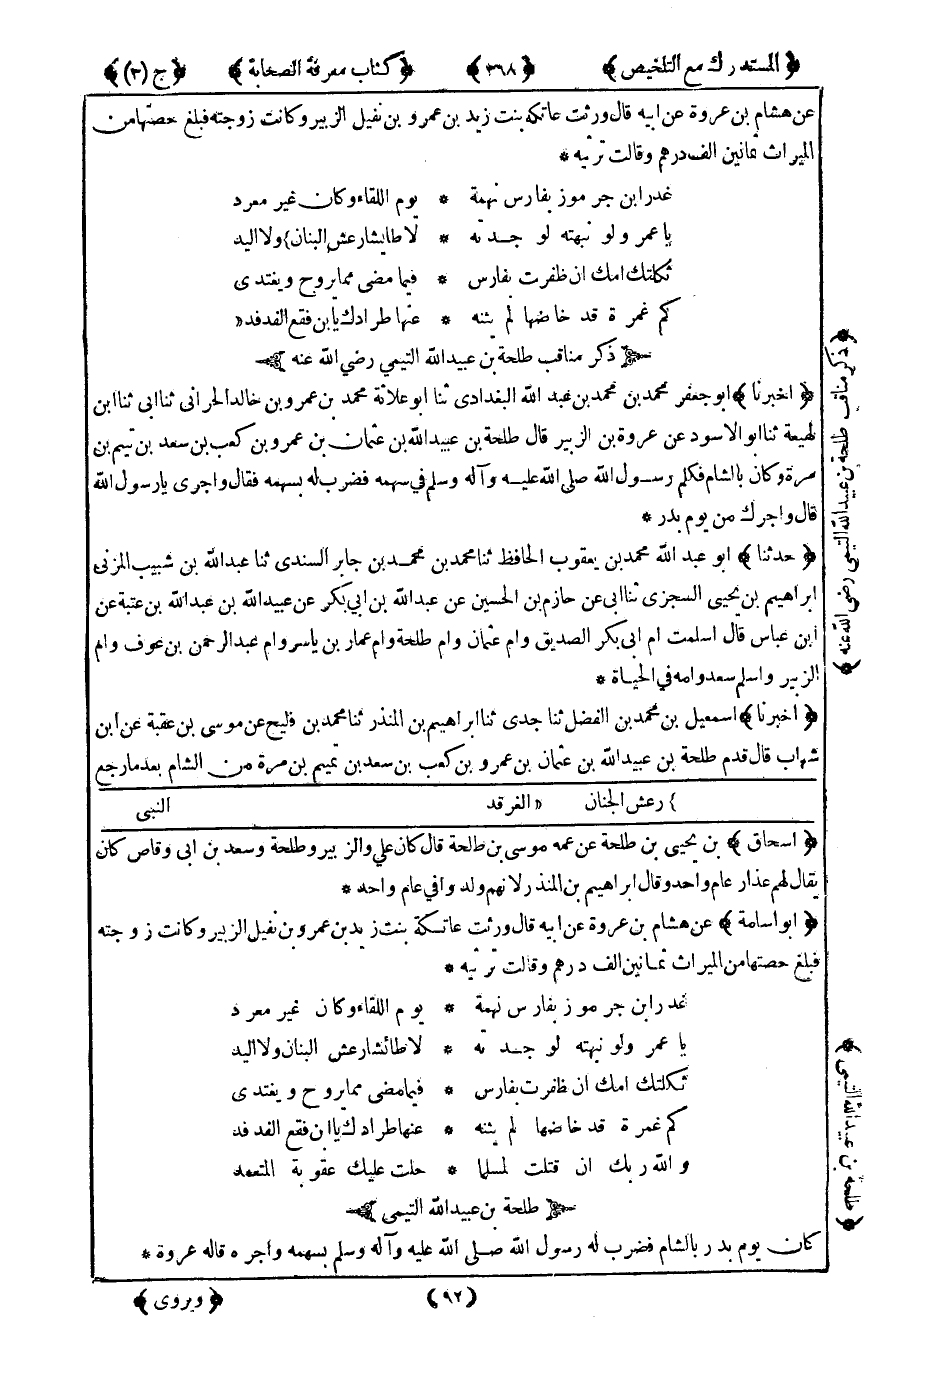 ﴿المستدرك مع التلخيص﴾ ﴿٣٦٨﴾ ﴿كتاب معرفة الصحابة﴾ ﴿ج (٣)﴾
عن هشام بن عروة عن ابيه قال ورثت عاتكة بنت زيد بن عمرو بن نفيل الزبير وكانت زوجته فبلغ حصتها من
الميراث ثمانين الف درهم وقالت ترثيه *
غدر ابن جرموز بفارس نهمة * يوم اللقاء وكان غير معرد
يا عمرو لو نبهته لوجدته * لا طايشا رعش البنان} ولا اليد
ثكلتك امك ان ظفرت بفارس * فيما مضى مما يروح ويغتدى
كم غمرة قد خاضها لم يثنه * عنها طرادك يا بن فقع الفدفد «
ذكر مناقب طلحة بن عبيد الله التيمي رضي الله عنه
﴿اخبرنا﴾ ابو جعفر محمد بن محمد بن عبد الله البغدادى ثنا ابو علاثة محمد بن عمرو بن خالد الحرانى ثنا ابى ثنا ابن
لهيعة ثنا ابو الاسود عن عروة بن الزبير قال طلحة بن عبيد الله بن عثمان بن عمرو بن كعب بن سعد بن تيم بن
مرة وكان بالشام فكلم رسول الله صلى الله عليه وآله وسلم في سهمه فضرب له بسهمه فقال واجرى يا رسول الله
قال واجرك من يوم بدر *
﴿حدثنا﴾ ابو عبد الله محمد بن يعقوب الحافظ ثنا محمد بن محمد بن جابر السندى ثنا عبد الله بن شبيب المزنى
ابراهيم بن يحيى السجزى ثنا ابى عن حازم بن الحسين عن عبد الله بن ابي بكر عن عبيد الله بن عبد الله بن عتبة عن
ابن عباس قال اسلمت ام ابى بكر الصديق وام عثمان وام طلحة وام عمار بن ياسر وام عبد الرحمن بن عوف وام
الزبير واسلم سعد وامه في الحياة *
﴿اخبرنا﴾ اسمعيل بن محمد بن الفضل ثنا جدى ثنا ابراهيم بن المنذر ثنا محمد بن فليح عن موسى بن عقبة عن ابن
شهاب قال قدم طلحة بن عبيد الله بن عثمان بن عمرو بن كعب بن سعد بن تميم بن مرة من الشام بعد ما رجع
} رعش الجنان « الفرقد النبى
﴿اسحاق﴾ بن يحيى بن طلحة عن عمه موسى بن طلحة قال كان علي والزبير وطلحة وسعد بن ابى وقاص كان
يقال لهم عذار عام واحد وقال ابراهيم بن المنذر لانهم ولدوا في عام واحد *
﴿ابو اسامة﴾ عن هشام بن عروة عن ابيه قال ورثت عاتكة بنت زيد بن عمرو بن نفيل الزبير وكانت زوجته
فبلغ حصتها من الميراث ثمانين الف درهم وقالت ترثيه *
غدر ابن جرموز بفارس نهمة * يوم اللقاء وكان غير معرد
يا عمرو لو نبهته لوجدته * لا طائشا رعش البنان ولا اليد
ثكلتك امك ان ظفرت بفارس * فيما مضى مما يروح ويغتدى
كم غمرة قد خاضها لم يثنه * عنها طرادك يا ابن فقع الفدفد
والله ربك ان قتلت لمسلما * حلت عليك عقوبة المتعمد
طلحة بن عبيد الله التيمى
كان يوم بدر بالشام فضرب له رسول الله صلى الله عليه وآله وسلم بسهمه واجره قاله عروة *
(٩٢) ﴿ويروى﴾
﴿ذكر مناقب طلحة بن عبيد الله التيمى رضى الله عنه﴾
﴿طلحة بن عبيد الله التيمى﴾